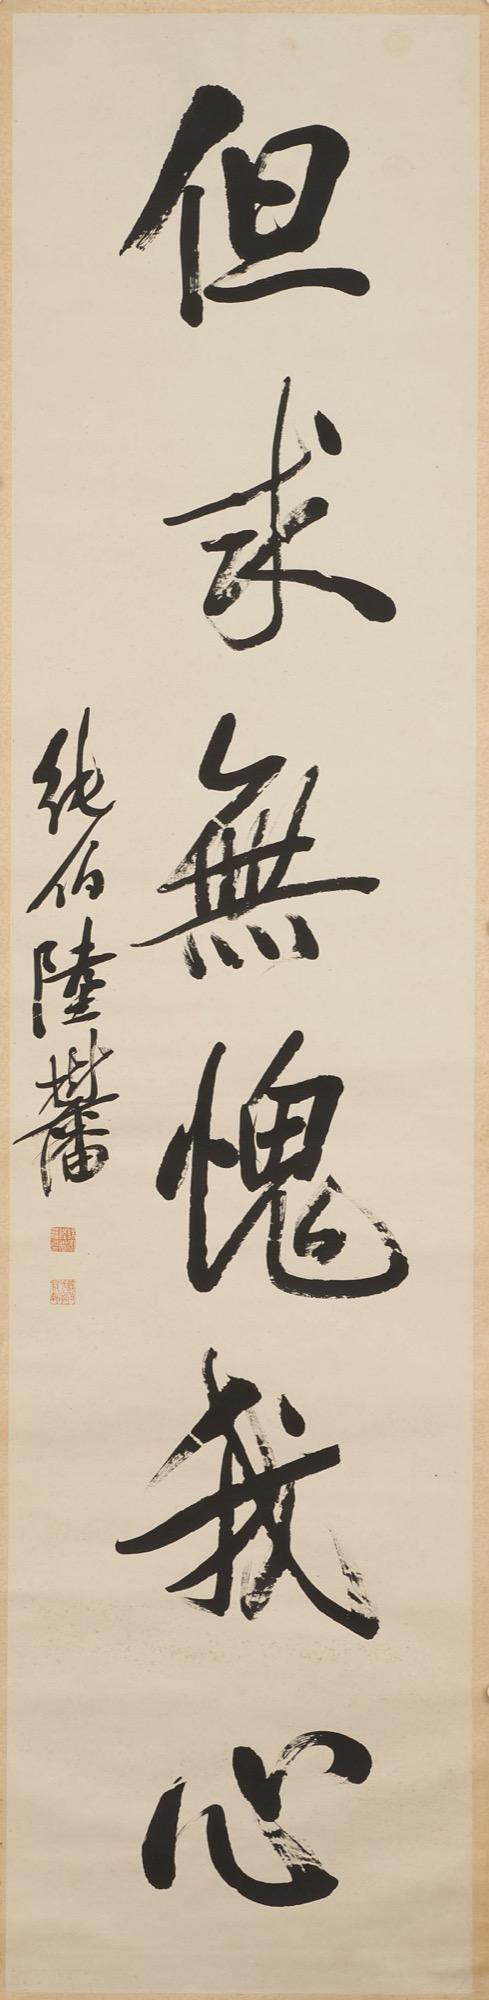 但求無愧我心
純伯陸樹藩